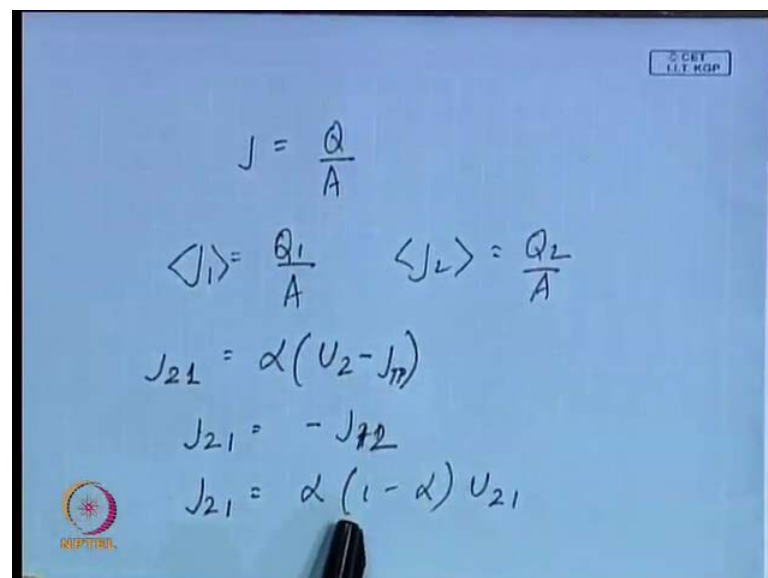 © CET
I.I.T. KGP
J = Q/A
<J₁> = Q₁/A <J₂> = Q₂/A
J₂₁ = α(U₂ - J_TP)
J₂₁ = - J₁₂
J₂₁ = α(1 - α) U₂₁
NPTEL